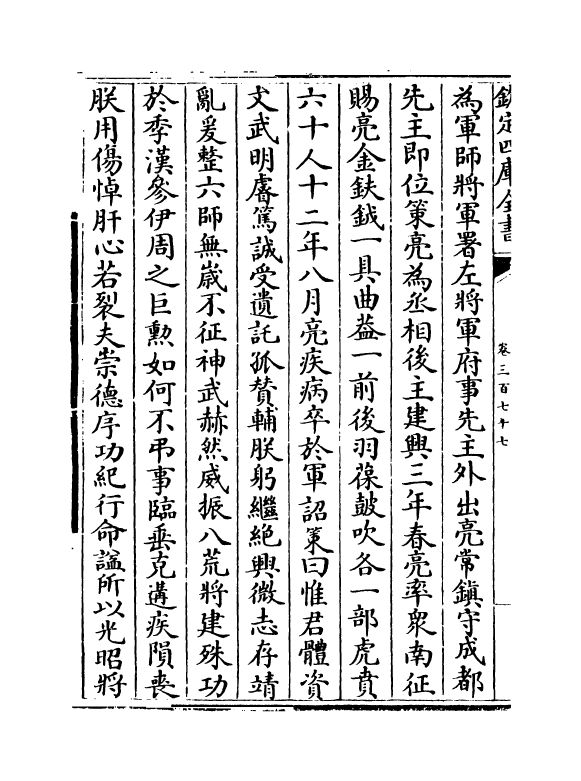 欽定四庫全書
卷三百七十七
為軍師將軍署左將軍府事先主外出亮常鎮守成都
先主即位策亮為丞相後主建興三年春亮率衆南征
賜亮金鈇鉞一具曲葢一前後羽葆鼓吹各一部虎賁
六十人十二年八月亮疾病卒於軍詔策曰惟君體資
文武明睿篤誠受遺託孤賛輔朕躬繼絶興微志存靖
亂爰整六師無嵗不征神武赫然威振八荒將建殊功
於季漢參伊周之巨勲如何不弔事臨垂克遘疾隕喪
朕用傷悼肝心若裂夫崇德序功紀行命諡所以光昭將